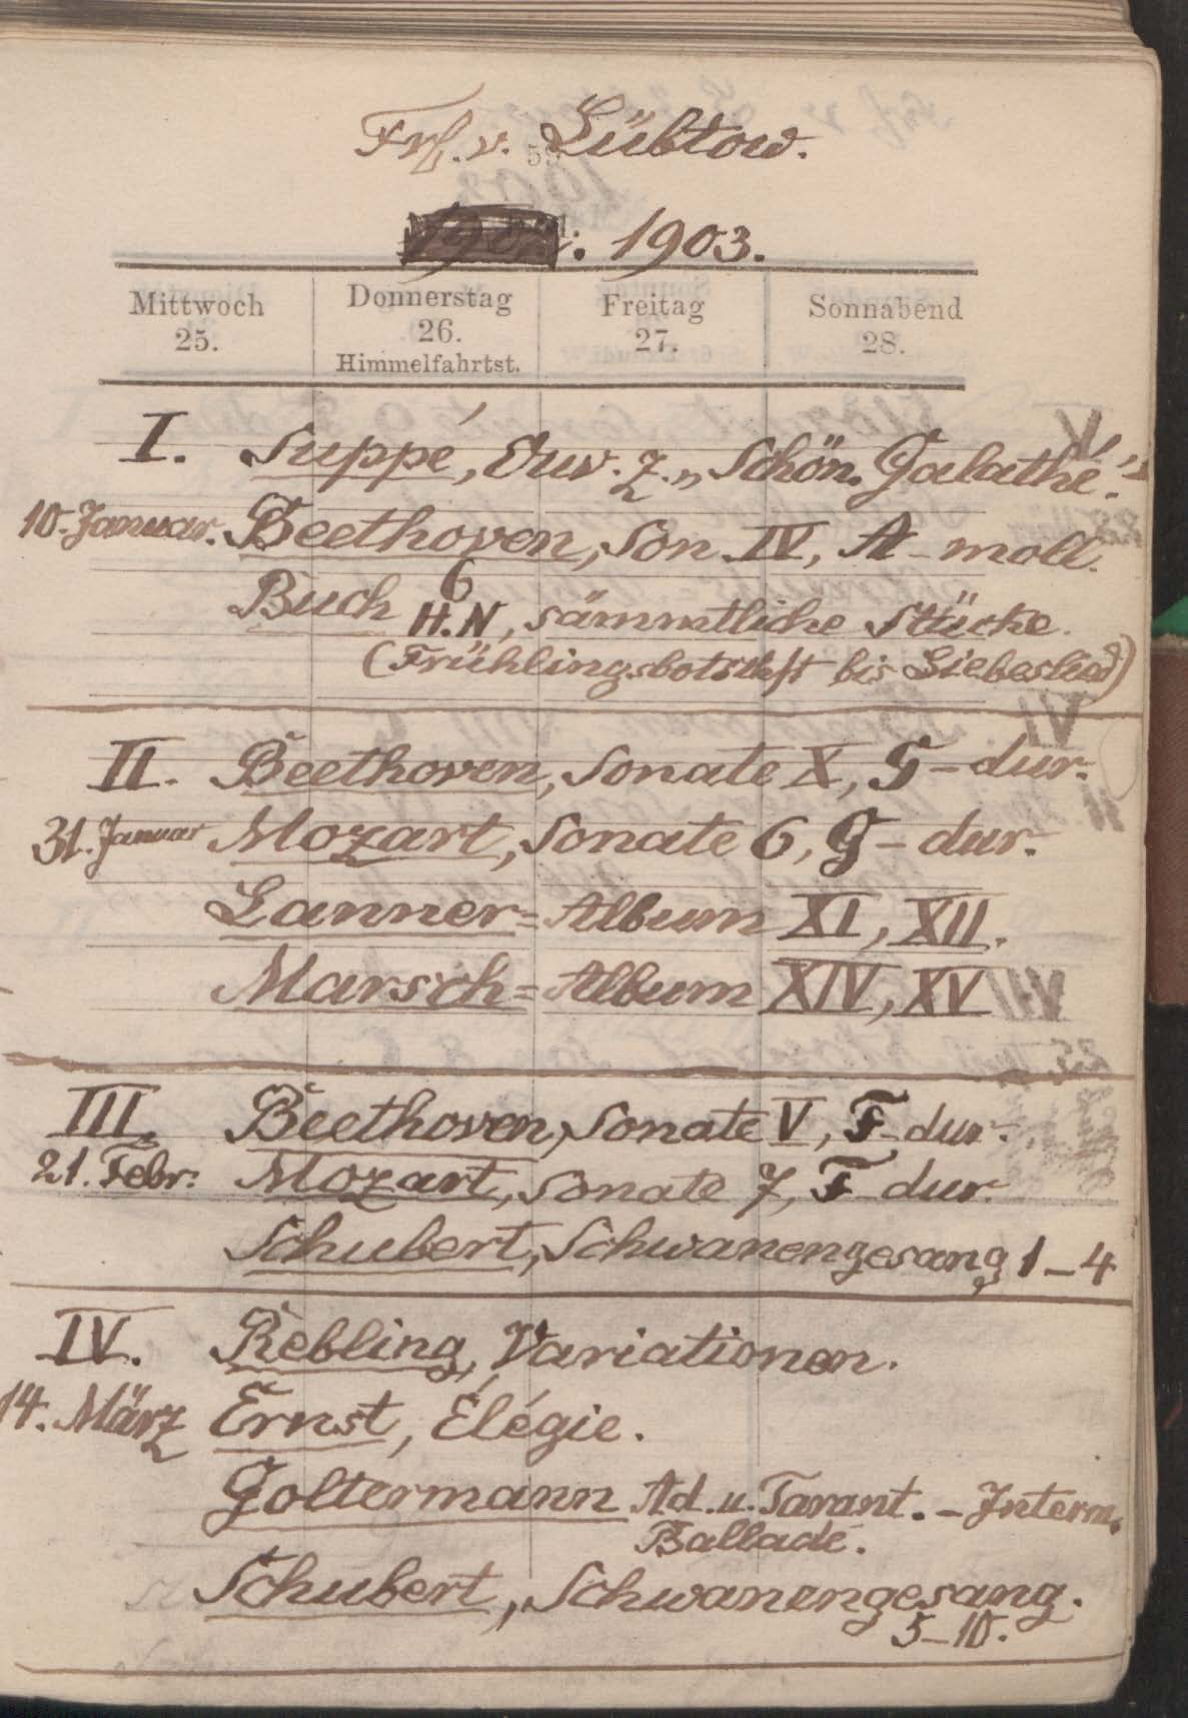 Frl. v. Lübtow.
1903.
Mittwoch 25. Donnerstag 26. Himmelfahrtst. Freitag 27. Sonnabend 28.
I. Suppé, Ouv. z. „Schön. Galathé."
10. Januar. Beethoven, Son. IV, A-moll.
Buch 6 H.N, sämmtliche Stücke.
(Frühlingsbotschft bis Liebeslied)
II. Beethoven, Sonate X, G-dur.
31. Januar Mozart, Sonate 6, G-dur.
Lanner=Album XI, XII.
Marsch=Album XIV, XV
III. Beethoven, Sonate V, F-dur.
21. Febr. Mozart, Sonate 7, F-dur.
Schubert, Schwanengesang 1-4
IV. Rebling, Variationen.
14. März Ernst, Élégie.
Goltermann Ad. u. Tarant. - Interm.
Ballade.
Schubert, Schwanengesang.
5-10.